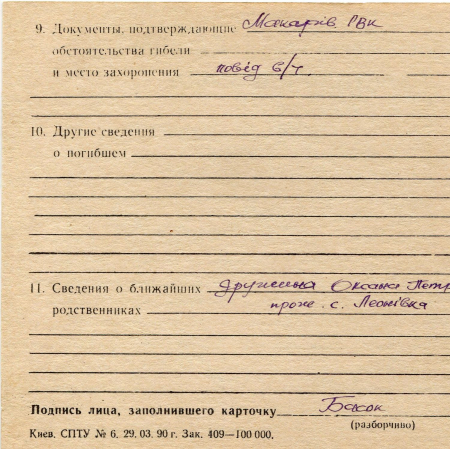 9. Документы, подтверждающие Макарів РВК
обстоятельства гибели
и место захоронения повід в/ч
10. Другие сведения
о погибшем
11. Сведения о ближайших дружина Оксана Петр
родственниках прож. с. Леонівка
Подпись лица, заполнившего карточку Басок
(разборчиво)
Киев. СПТУ № 6. 29. 03. 90 г. Зак. 409—100 000.